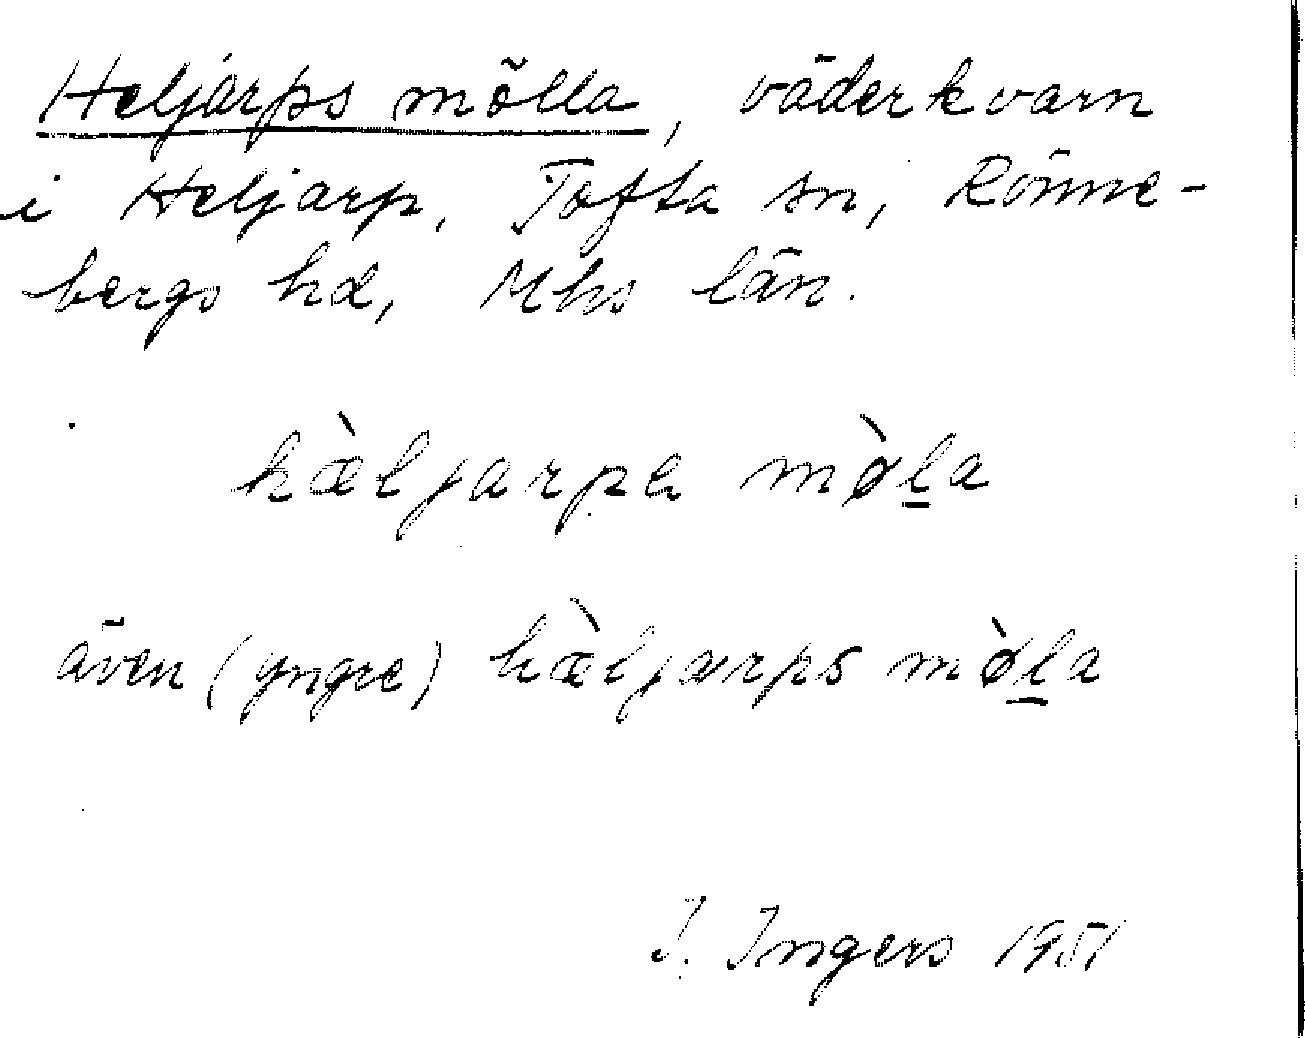 Heljarps mölla, väderkvarn
i Heljarp, Tofta sn, Rönne-
bergs hd, Mhs län.
hæ̀ljarpa mø̀l̲a
även (yngre) hæ̀ljarps mø̀l̲a
I. Ingers 1951